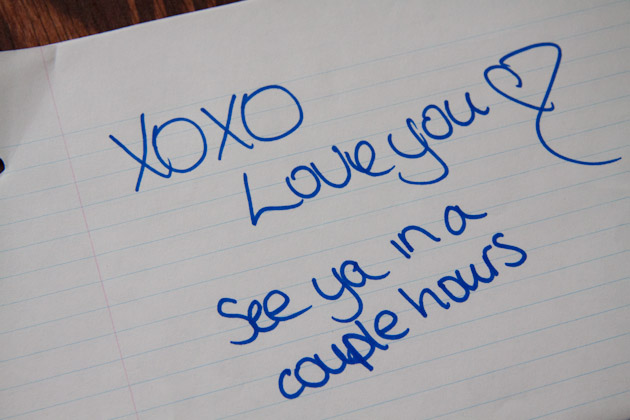 XOXO
Love you
See ya in a
couple hours